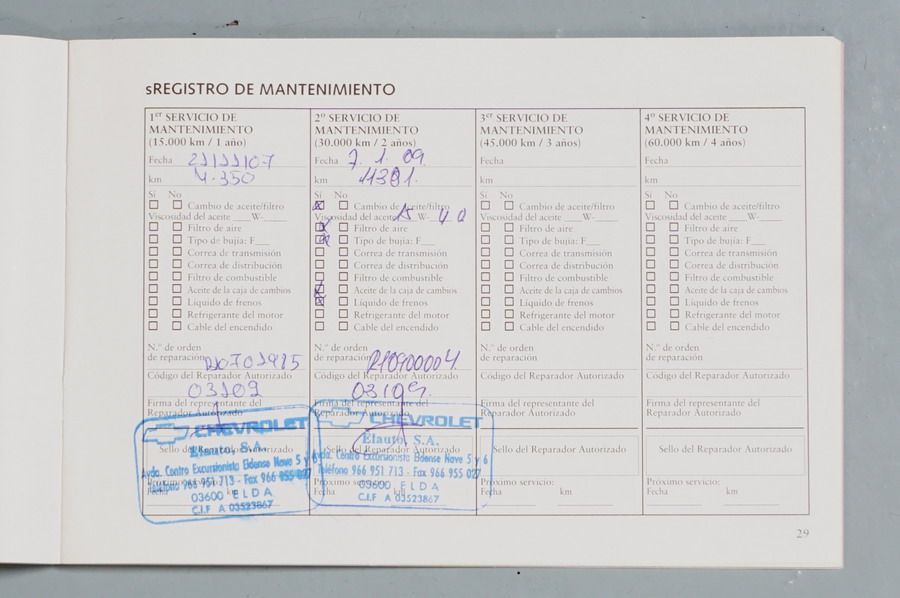 sREGISTRO DE MANTENIMIENTO
1er SERVICIO DE
MANTENIMIENTO
(15.000 km / 1 año)
Fecha 21/11/07
km 4.350
Sí No
Cambio de aceite/filtro
Viscosidad del aceite ___W-____
Filtro de aire
Tipo de bujía: F___
Correa de transmisión
Correa de distribución
Filtro de combustible
Aceite de la caja de cambios
Líquido de frenos
Refrigerante del motor
Cable del encendido
N.º de orden
de reparación
Código del Reparador Autorizado
03109
Firma del representante del
Reparador Autorizado
CHEVROLET
Sello del Reparador Autorizado
Elauto, S.A.
Avda. Centro Excursionista Eldense Nave 5 y 6
Teléfono 966 951 713 - Fax 966 955 027
Próximo servicio:
Fecha km
03600 ELDA
C.I.F A 03523867
2º SERVICIO DE
MANTENIMIENTO
(30.000 km / 2 años)
Fecha 7.1.09.
km 11381.
Sí No
Cambio de aceite/filtro
Viscosidad del aceite 15 W- 40
Filtro de aire
Tipo de bujía: F___
Correa de transmisión
Correa de distribución
Filtro de combustible
Aceite de la caja de cambios
Líquido de frenos
Refrigerante del motor
Cable del encendido
N.º de orden
de reparación R10900004
Código del Reparador Autorizado
03109.
Firma del representante del
Reparador Autorizado
CHEVROLET
Sello del Reparador Autorizado
Elauto, S.A.
Avda. Centro Excursionista Eldense Nave 5 y 6
Teléfono 966 951 713 - Fax 966 955 027
Próximo servicio:
Fecha km
03600 ELDA
C.I.F A 03523867
3er SERVICIO DE
MANTENIMIENTO
(45.000 km / 3 años)
Fecha
km
Sí No
Cambio de aceite/filtro
Viscosidad del aceite ___W-____
Filtro de aire
Tipo de bujía: F___
Correa de transmisión
Correa de distribución
Filtro de combustible
Aceite de la caja de cambios
Líquido de frenos
Refrigerante del motor
Cable del encendido
N.º de orden
de reparación
Código del Reparador Autorizado
Firma del representante del
Reparador Autorizado
Sello del Reparador Autorizado
Próximo servicio:
Fecha km
4º SERVICIO DE
MANTENIMIENTO
(60.000 km / 4 años)
Fecha
km
Sí No
Cambio de aceite/filtro
Viscosidad del aceite ___W-____
Filtro de aire
Tipo de bujía: F___
Correa de transmisión
Correa de distribución
Filtro de combustible
Aceite de la caja de cambios
Líquido de frenos
Refrigerante del motor
Cable del encendido
N.º de orden
de reparación
Código del Reparador Autorizado
Firma del representante del
Reparador Autorizado
Sello del Reparador Autorizado
Próximo servicio:
Fecha km
29